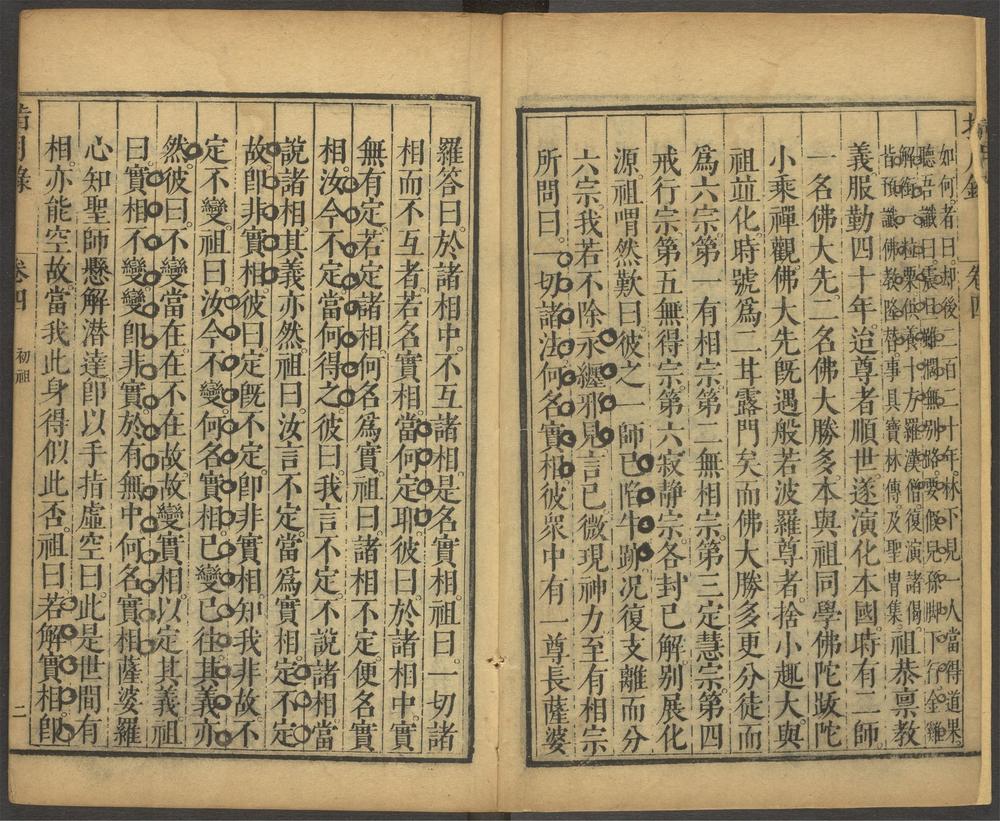 指月錄 卷四
如何。者曰。却後一百二十年。林下見一人。當得道果。
聽吾讖曰。震旦雖闊無别路。要假兒孫脚下行。金雞
解銜一粒粟。供養十方羅漢僧。復演諸偈。
皆預讖佛教隆替。事具寶林傳及聖冑集。
祖恭禀教
義服勤四十年。迨尊者順世。遂演化本國。時有二師。
一名佛大先。二名佛大勝多。本與祖同學佛陀䟦陀
小乘禪觀。佛大先旣遇般若波羅尊者。捨小趣大。與
祖並化。時號爲二甘露門矣。而佛大勝多更分徒而
爲六宗。第一有相宗。第二無相宗。第三定慧宗。第四
戒行宗。第五無得宗。第六寂靜宗。各封己解。别展化
源。祖喟然歎曰。彼之一師已陷牛跡。况復支離而分
六宗。我若不除。永纏邪見。言已微現神力。至有相宗
所問曰。一切諸法何名實相。彼衆中有一尊長薩婆
羅答曰。於諸相中。不互諸相。是名實相。祖曰。一切諸
相而不互者。若名實相。當何定耶。彼曰。於諸相中。實
無有定。若定諸相。何名爲實。祖曰。諸相不定。便名實
相。汝今不定。當何得之。彼曰。我言不定。不說諸相。當
說諸相。其義亦然。祖曰。汝言不定。當爲實相。定不定
故。卽非實相。彼曰。定旣不定。卽非實相。知我非故。不
定不變。祖曰。汝今不變。何名實相。已變已往。其義亦
然。彼曰。不變當在。在不在故。故變實相。以定其義。祖
曰。實相不變。變卽非實。於有無中。何名實相。薩婆羅
心知聖師懸解潛達。卽以手指虛空曰。此是世間有
相。亦能空故。當我此身得似此否。祖曰。若解實相。卽
指月錄 卷四 初祖 二